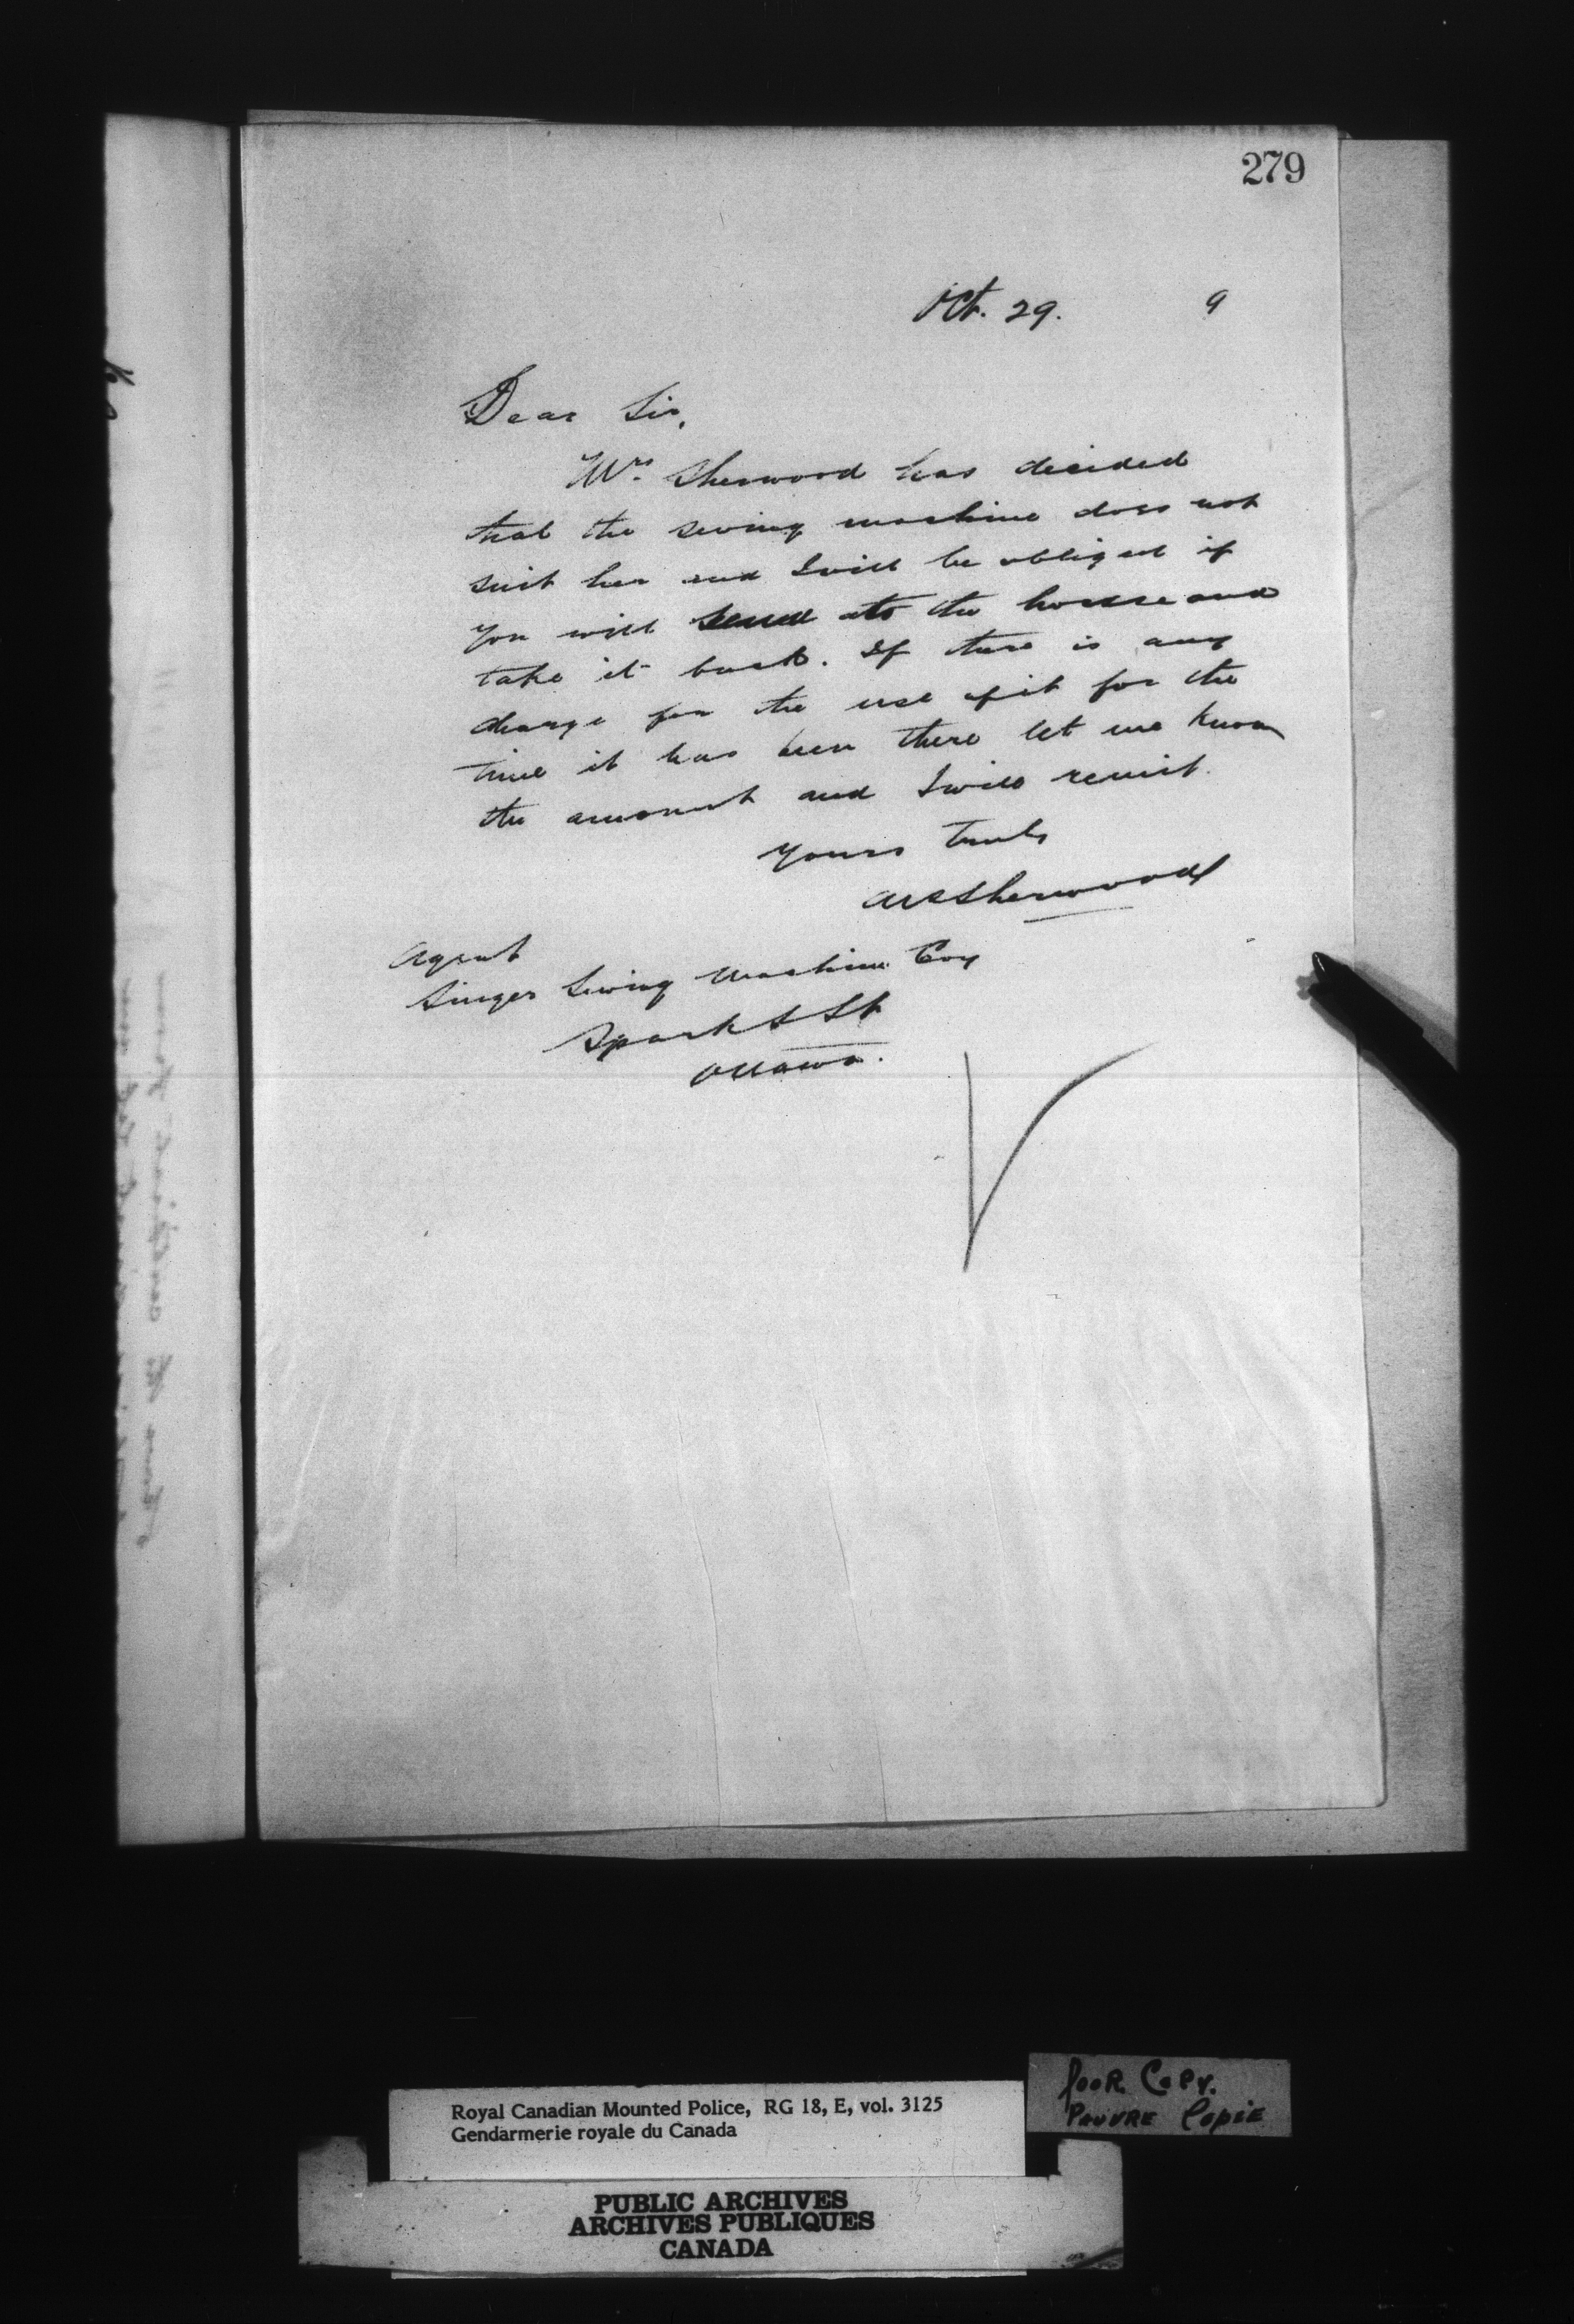 279
Oct. 29. 9
Dear Sir,
Mrs. Sherwood has decided
that the sewing machine does not
suit her and I will be obliged if
you will send to the house and
take it back. If there is any
charge for the use of it for the
time it has been there let me know
the amount and I will remit.
Yours truly
AP Sherwood
Agent
Singer Sewing Machine Coy
Sparks St
Ottawa.
Royal Canadian Mounted Police, RG 18, E, vol. 3125
Gendarmerie royale du Canada
PooR Copy.
PAUVRE Copie
PUBLIC ARCHIVES
ARCHIVES PUBLIQUES
CANADA